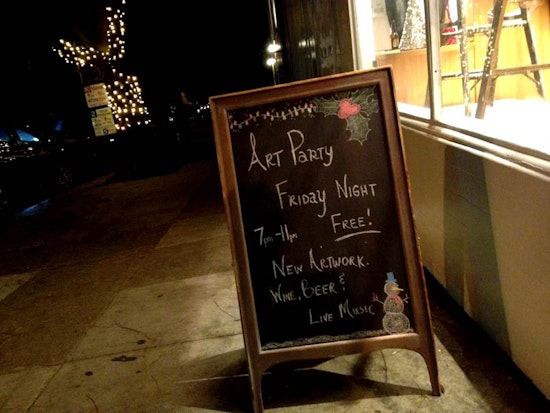 Art Party
Friday Night
7pm-11pm Free!
New Artwork.
Wine, Beer &
Live Music